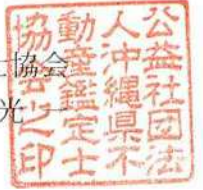 士協会
光
公益社団法
人沖縄県不
動産鑑定士
協会之印